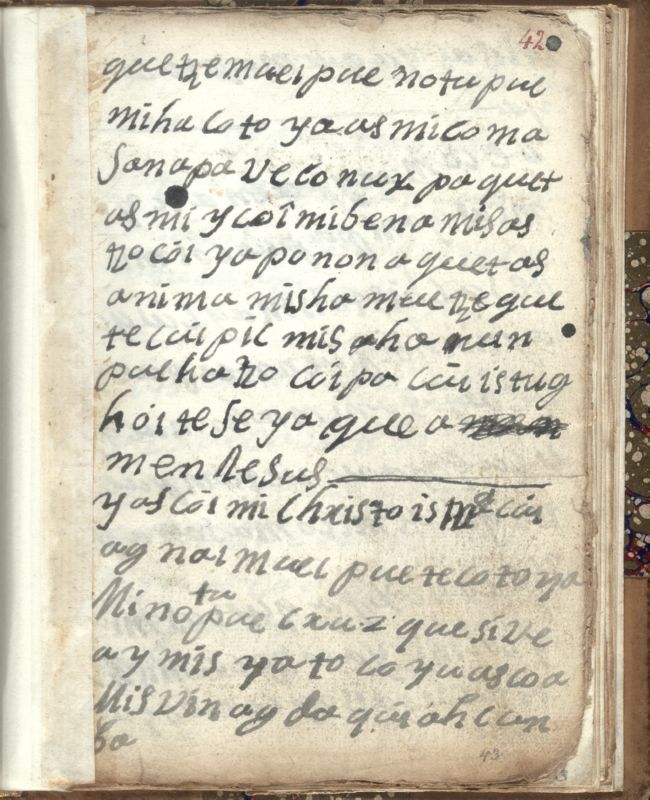 42
que tze muei pue notu pue
miha coto ya as mi coma
Sanapa ve co nux pa quet
as mi y coî mi bena misas
tzo côi ya pa non a quet as
anima misha mue tze que
te cui pic mis aha nun
pue ha tzo côi pa côi is tug
hôi te se ya que a
men Jesus
y as côi mi Christo is côi
ag nai muei pue te co to ya
Mi no tu pue cruz que si ve
a y mis ya to co ya as coa
Mis vin ag da qui ah cun
ba
43